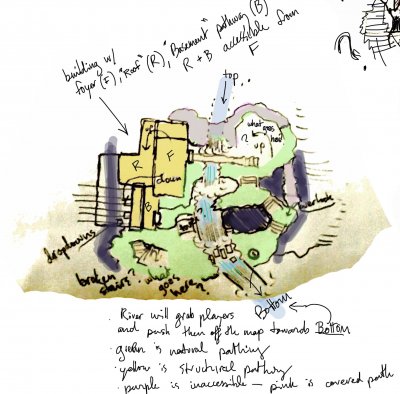 building w/
foyer (F), "Roof" (R), "Basement" pathway (B)
R + B accessible from
F
top
what goes
? here?
up
R
F
down
B
dropdowns
overlook
broken
stairs?
what
goes
here?
Bottom
· River will grab players
and push them off the map towards Bottom
· green is natural pathing
· yellow is structural pathing
· purple is inaccessible — pink is covered path